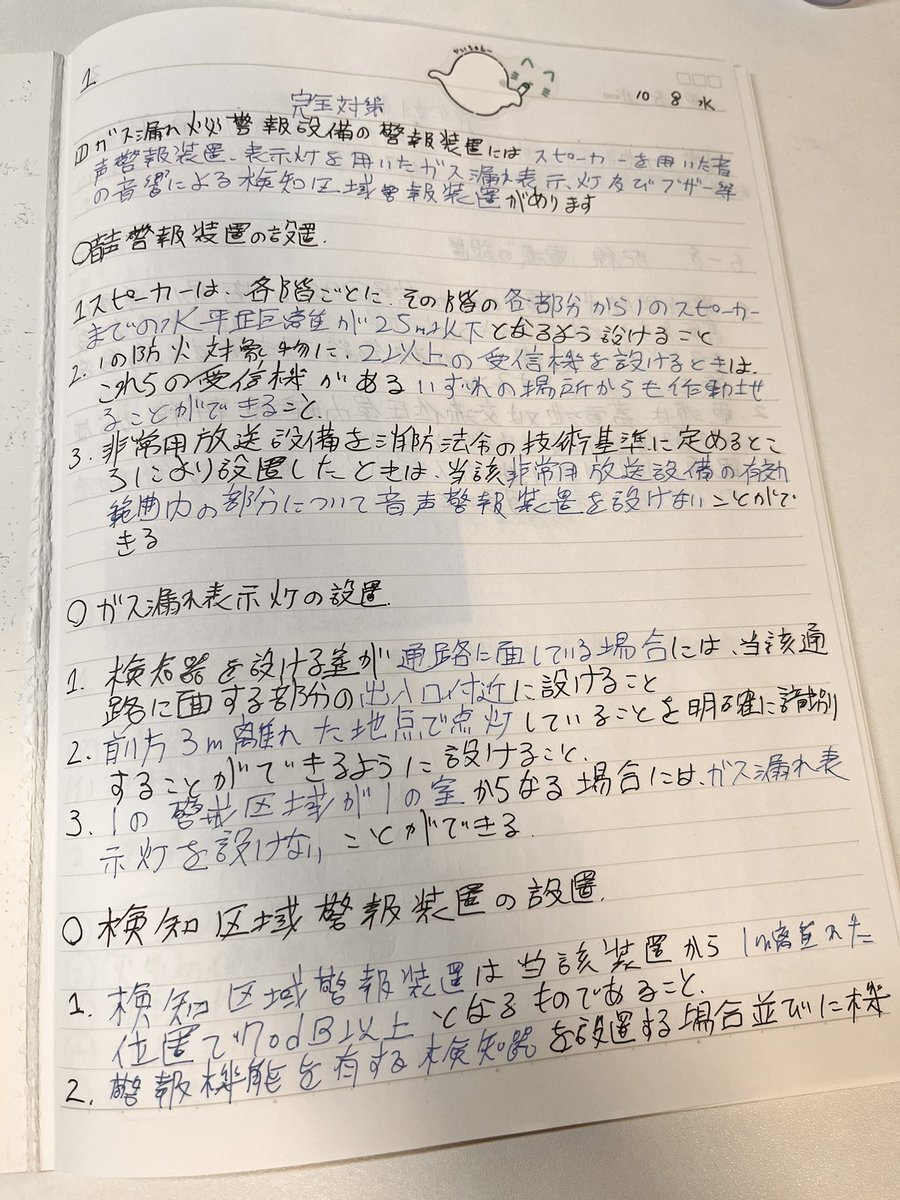 1.
完全対策
10 8 水
ガス漏れ火災警報設備の警報装置には スピーカーを用いた音
声警報装置、表示灯を用いたガス漏れ表示灯及びブザー等
の音響による検知区域警報装置があります
○音声警報装置の設置.
1スピーカーは、各階ごとに、その階の各部分から1のスピーカー
までの水平距離が25m以下となるよう設けること
2. 1の防火対象物に、2以上の受信機を設けるときは、
これらの受信機があるいずれの場所からも作動させ
ることができること.
3. 非常用放送設備を消防法令の技術基準に定めるとこ
ろにより設置したときは、当該非常用放送設備の有効
範囲内の部分について音声警報装置を設けないことがで
きる
○ガス漏れ表示灯の設置.
1. 検知器を設ける室が通路に面している場合には、当該通
路に面する部分の出入口付近に設けること
2. 前方3m離れた地点で点灯していることを明確に識別
することができるように設けること.
3. 1の警戒区域が1の室からなる場合には、ガス漏れ表
示灯を設けないことができる.
○検知区域警報装置の設置.
1. 検知区域警報装置は当該装置から1m離れた
位置で70dB以上となるものであること.
2. 警報機能を有する検知器を設置する場合並びに機